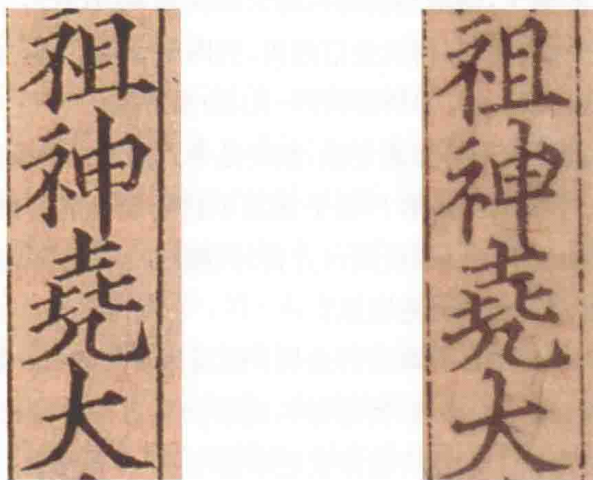 祖神堯大
祖神堯大